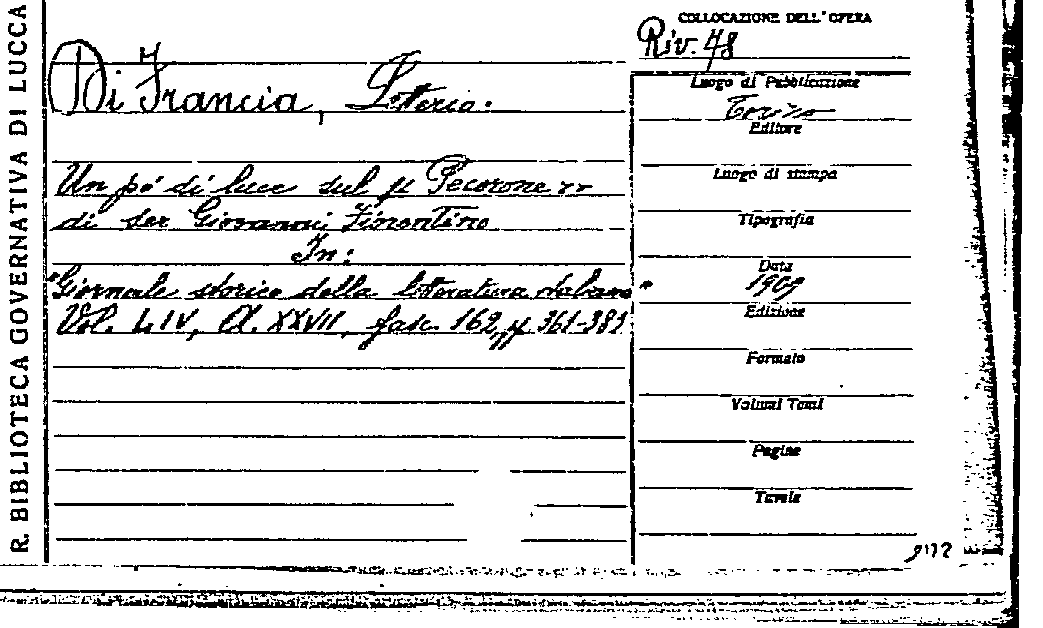 R. BIBLIOTECA GOVERNATIVA DI LUCCA
COLLOCAZIONE DELL'OPERA
Riv. 48
Di Francia, Letterio.
Un pó di luce sul « Pecorone »
di ser Giovanni Fiorentino
In:
"Giornale storico della letteratura italiana"
Vol. LIV, A. XXVII, fasc. 162, pp 361-381
Luogo di Pubblicazione
Torino
Editore
Luogo di stampa
Tipografia
Data
1909
Edizione
Formato
Volumi Tomi
Pagine
Tavole